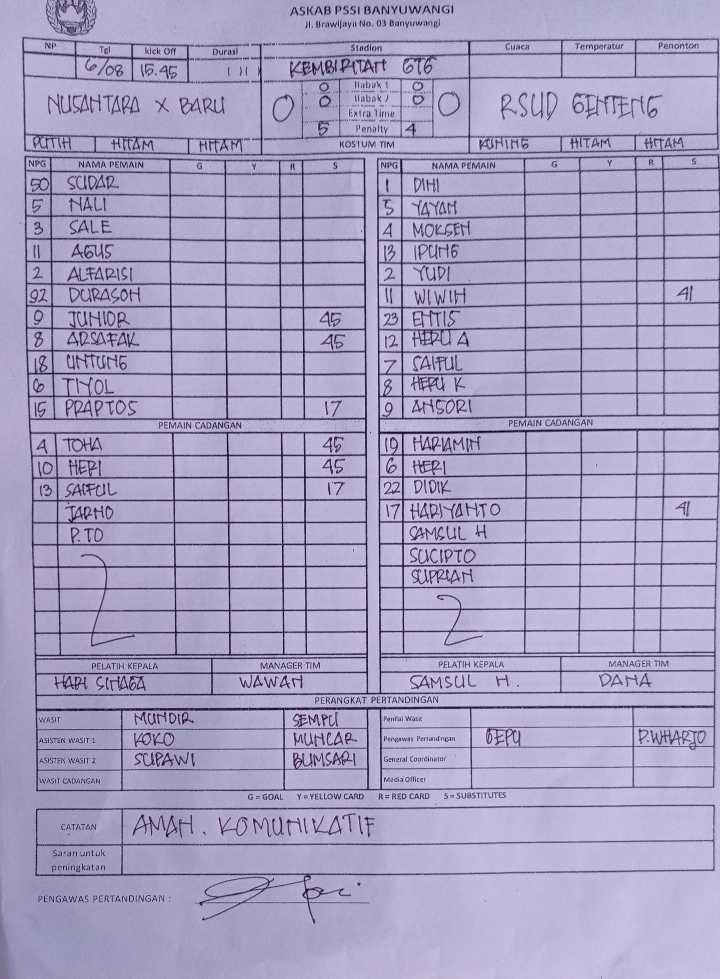 ASKAB PSSI BANYUWANGI
Jl. Brawijaya No. 03 Banyuwangi
NP Tgl kick Off Durasi Stadion Cuaca Temperatur Penonton
6/08 15.45 KEMBIRITAN
NUSANTARA X BARU 0 0 Babak 1 0 0 RSUD GENTENG
0 Babak 2 0
Extra Time
5 Penalty 4
PUTIH HITAM HITAM KOSTUM TIM KUNING HITAM HITAM
NPG NAMA PEMAIN G Y R S NPG NAMA PEMAIN G Y R S
50 SUDAR 1 DINI
5 NALI 5 YAYAN
3 SALE 4 MOKSEN
11 AGUS 13 IPUNG
2 ALFARISI 2 YUDI
92 DURASOH 11 WIWIH 41
9 JUNIOR 45 23 ENTIS
8 ARSAFAK 45 12 HERU A
18 UNTUNG 7 SAIFUL
6 TIYOL 8 HERU K
15 PRAPTOS 17 9 ANSORI
PEMAIN CADANGAN PEMAIN CADANGAN
4 TOHA 45 19 HARIAMIN
10 HERI 45 6 HERI
13 SAIFUL 17 22 DIDIK
JARNO 17 HARIYANTO 41
P. TO SAMSUL H
SUCIPTO
SUPRIAN
PELATIH KEPALA MANAGER TIM PELATIH KEPALA MANAGER TIM
HARI SINAGA WAWAN SAMSUL H. DANA
PERANGKAT PERTANDINGAN
WASIT MUNDIR SEMPU Penilai Wasit
ASISTEN WASIT 1 KOKO MUNCAR Pengawas Pertandingan GEPU P.WHARJO
ASISTEN WASIT 2 SUPAWI BUMSARI General Coordinator
WASIT CADANGAN Media Officer
G = GOAL Y = YELLOW CARD R = RED CARD S = SUBSTITUTES
CATATAN AMAN. KOMUNIKATIF
Saran untuk
peningkatan
PENGAWAS PERTANDINGAN :